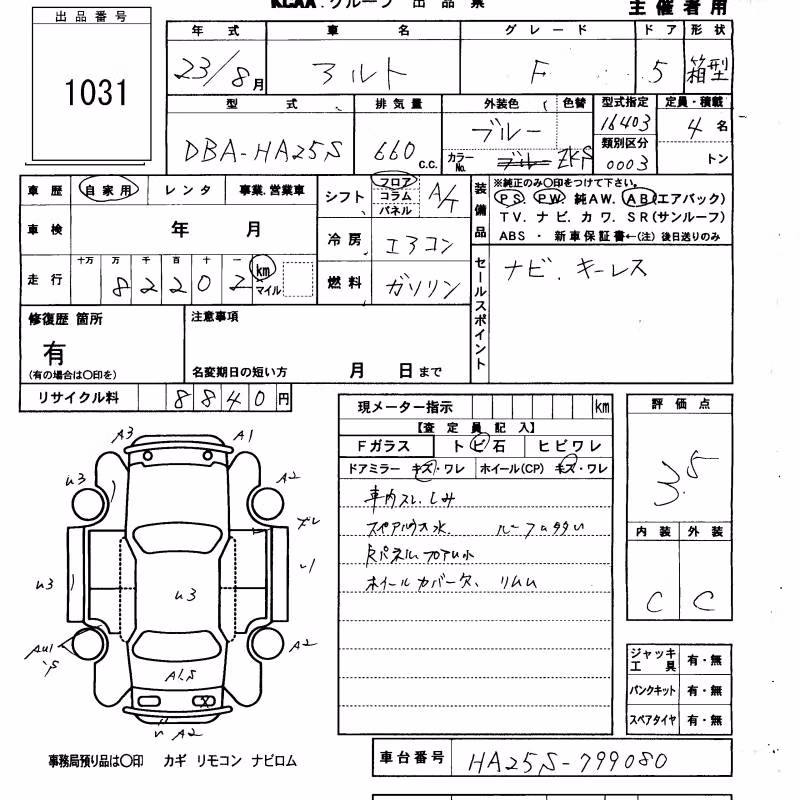 KCAA.グループ 出品票 主催者用
出品番号
1031
年式 車名 グレード ドア 形状
23/8月 アルト F 5 箱型
型式 排気量 外装色 色替 型式指定 定員・積載
DBA-HA25S 660 c.c. ブルー 16403 4名
カラーNo. ブルー ZKS 類別区分 0003 トン
車歴 自家用 レンタ 事業.営業車
シフト フロア コラム パネル A/T
装備品 ※純正のみ〇印をつけて下さい。
PS PW 純AW. AB(エアバック)
TV. ナビ. カワ. SR(サンルーフ)
ABS ・ 新車保証書←(注)後日送りのみ
車検 年 月
冷房 エアコン
走行 十万 万 千 百 十 一 km マイル
82202
燃料 ガソリン
セールスポイント ナビ. キーレス
修復歴 箇所 有
(有の場合は〇印を)
注意事項
名変期日の短い方 月 日まで
リサイクル料 8840円
現メーター指示 km
【査定員記入】
Fガラス トビ石 ヒビワレ
ドアミラー キズ・ワレ ホイール(CP) キズ・ワレ
車内スレ.しみ
スペアハウス水.
ホイールカバー欠、リムU
評価点
3.5
内装 外装
C C
A3 A1
U3 A2
ズレ
U3 U3
A2
A2
ジャッキ工具 有・無
パンクキット 有・無
スペアタイヤ 有・無
事務局預り品は〇印 カギ リモコン ナビロム
車台番号 HA25S-799080